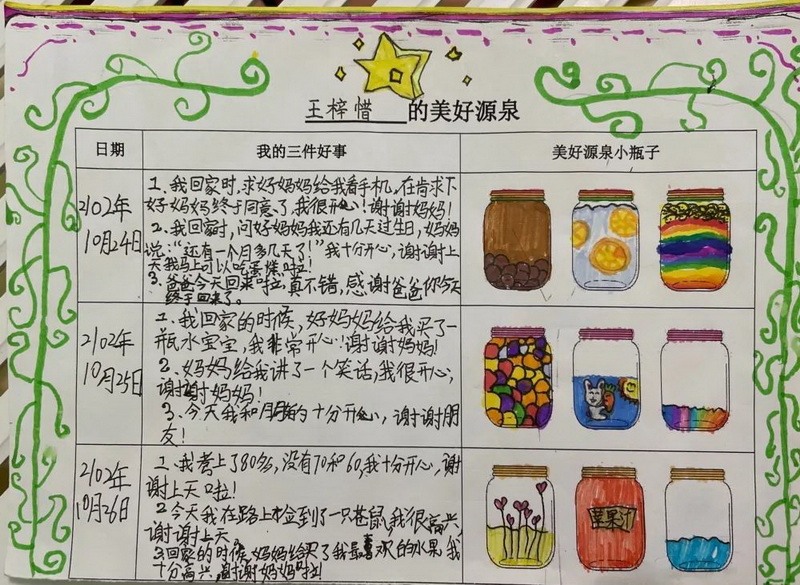 王梓惜 的美好源泉
日期 我的三件好事 美好源泉小瓶子
2102年
10月24日
1、我回家时,求好妈妈给我看手机,在肯求下
好妈妈终于同意了,我很开心!谢谢妈妈!
2、我回家时,问好妈妈我还有几天过生日,妈妈
说:“还有一个月多几天了!”我十分开心,谢谢上
天我马上可以吃蛋糕啦!
3、爸爸今天回来啦,真不错,感谢爸爸你今天
终于回来了。
2102年
10月25日
1、我回家的时候,好妈妈给我买了一
瓶水宝宝,我非常开心!谢谢妈妈!
2、妈妈给我讲了一个笑话,我很开心,
谢谢妈妈!
3、今天我和朋友的十分开心,谢谢朋
友!
2102年
10月26日
1、我考上了80分,没有70和60,我十分开心,谢
谢上天啦!
2、今天我在路上检到了一只苍鼠,我很高兴,
谢谢上天
3、回家的时候,妈妈给买了我最喜欢的水果,我
十分高兴,谢谢妈妈啦
苹果汁